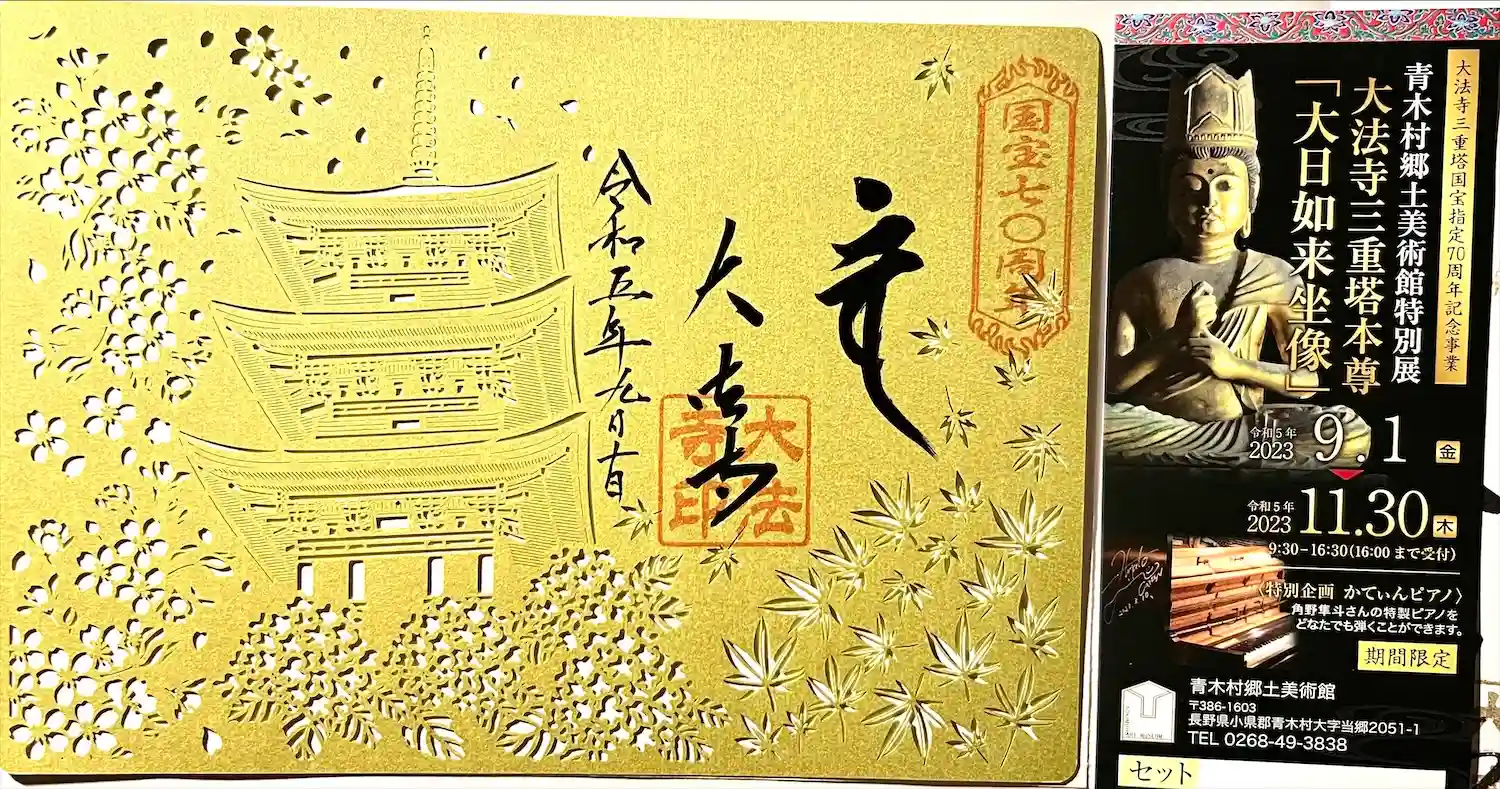 国宝七〇周年
大法寺
大法
寺印
令和五年九月
大法寺三重塔国宝指定70周年記念事業
青木村郷土美術館特別展
大法寺三重塔本尊
「大日如来坐像」
令和5年
2023 9.1 金
令和5年
2023 11.30 木
9:30-16:30(16:00まで受付)
〈特別企画 かてぃんピアノ〉
角野隼斗さんの特製ピアノを
どなたでも弾くことができます。
期間限定
青木村郷土美術館
〒386-1603
長野県小県郡青木村大字当郷2051-1
TEL 0268-49-3838
セット